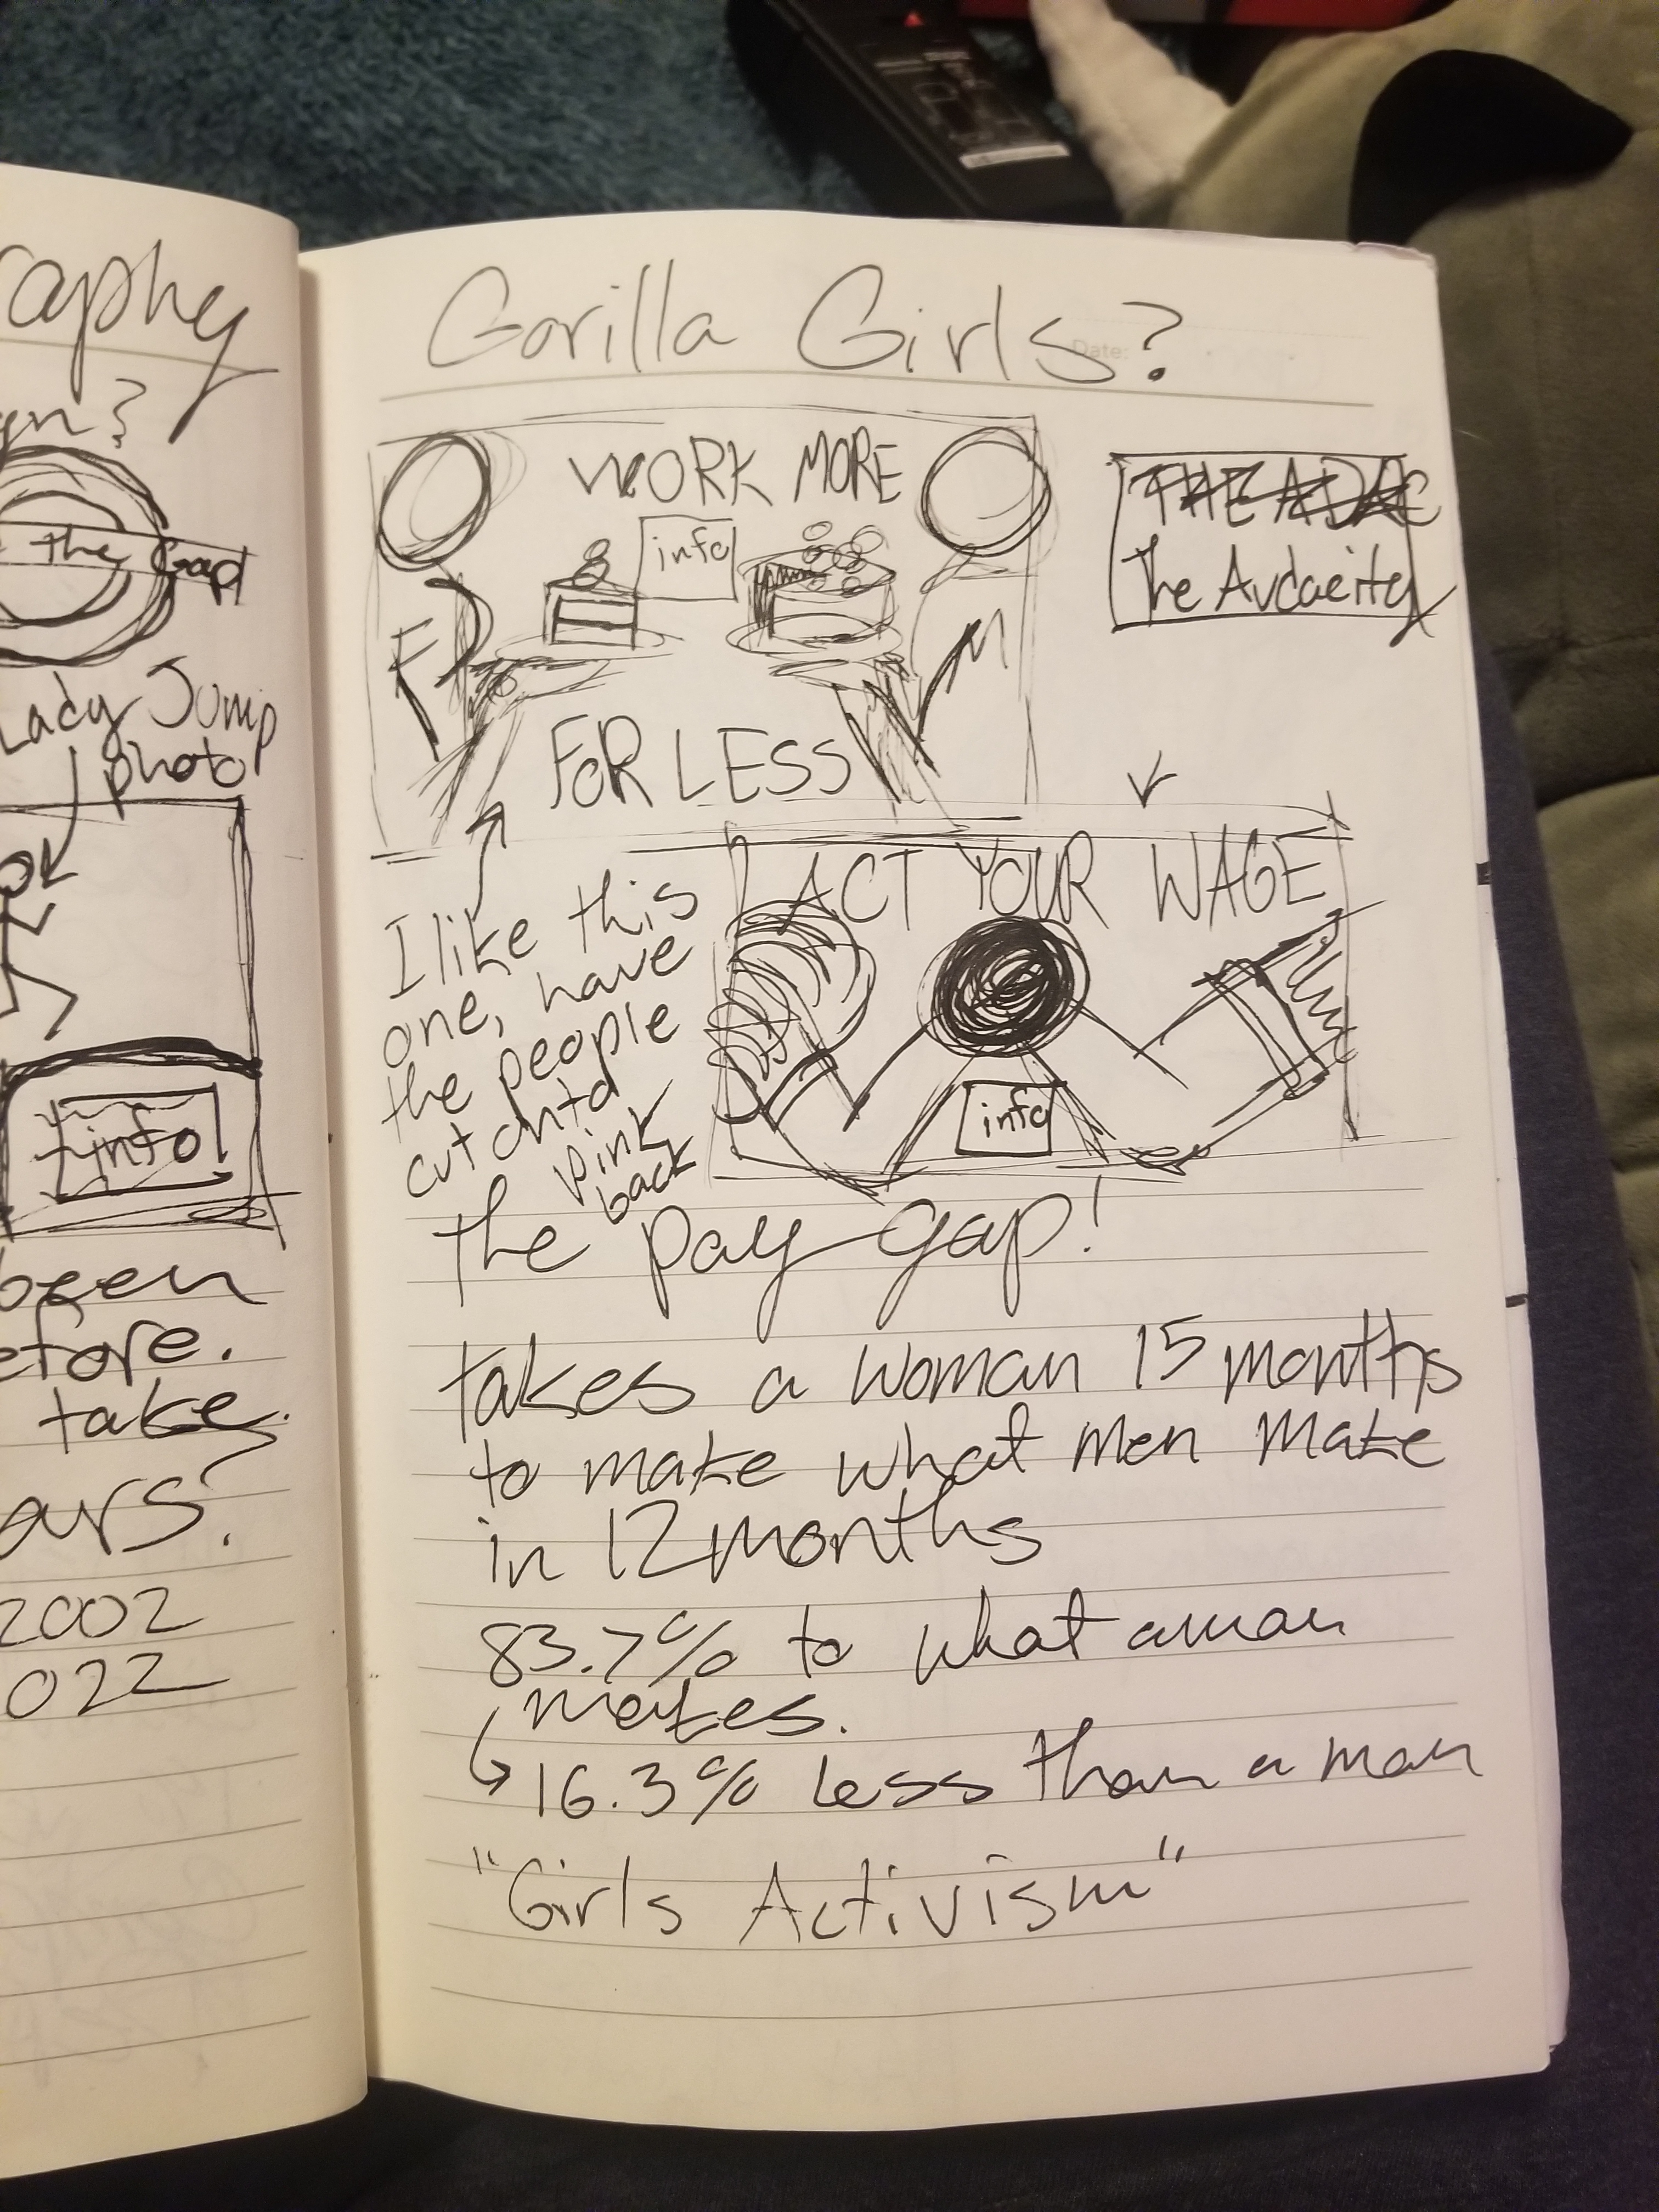 raphy
the Gap
Lady Jump
photo
info
been
efore.
take.
ars?
2002
022
Gorilla Girls?
Date:
WORK MORE
info
F
M
FOR LESS
THE ADAC
The Audacity
I like this
one, have
the people
cut onto
pink
back
ACT YOUR WAGE
info
the pay gap!
takes a woman 15 months
to make what men make
in 12 months
83.7% to what a man
makes.
16.3% less than a man
"Girls Activism"